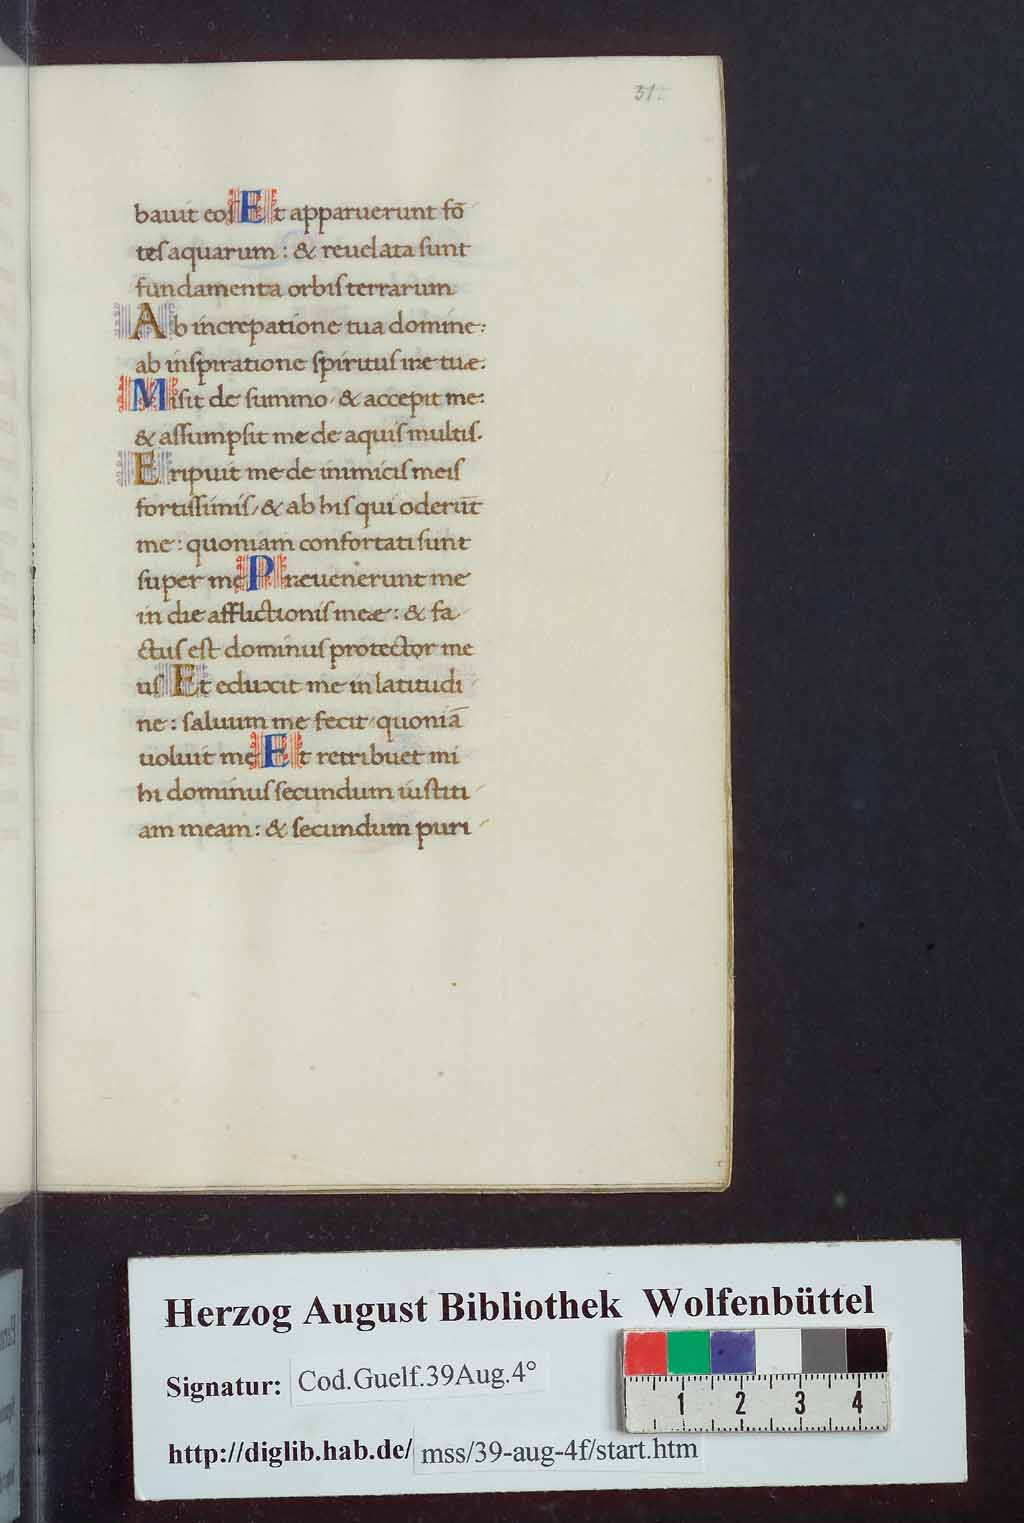 31.
bauit eos Et apparuerunt fō
tes aquarum : & reuelata sunt
fundamenta orbis terrarum
Ab increpatione tua domine :
ab inspiratione spiritus iræ tuæ.
Misit de summo, & accepit me :
& assumpsit me de aquis multis.
Eripuit me de inimicis meis
fortissimis, & ab his qui oderūt
me : quoniam confortati sunt
super me Præuenerunt me
in die afflictionis meæ : & fa
ctus est dominus protector me
us Et eduxit me in latitudi
ne : saluum me fecit, quoniā
uoluit me Et retribuet mi
hi dominus secundum iustiti
am meam : & secundum puri
Herzog August Bibliothek Wolfenbüttel
Signatur: Cod.Guelf.39Aug.4°
1 2 3 4
http://diglib.hab.de/ mss/39-aug-4f/start.htm